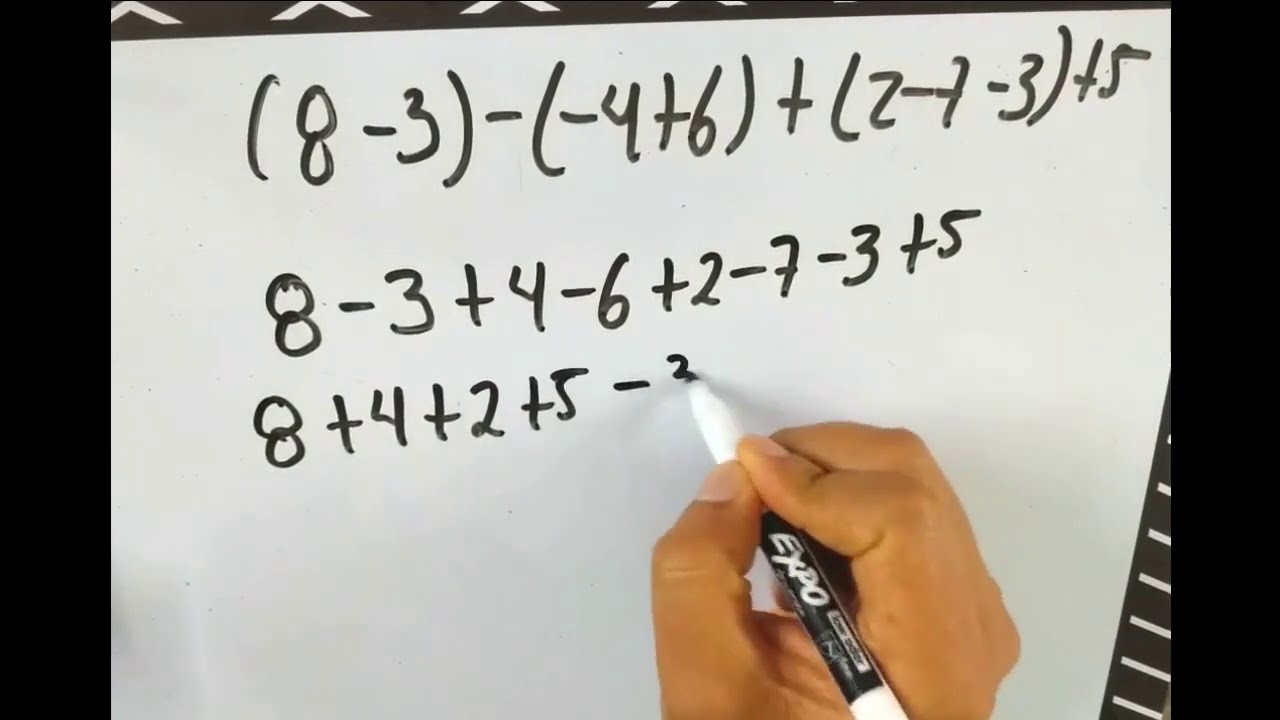 (8-3)-(-4+6)+(2-7-3)+5
8-3+4-6+2-7-3+5
8+4+2+5-3
EXPO